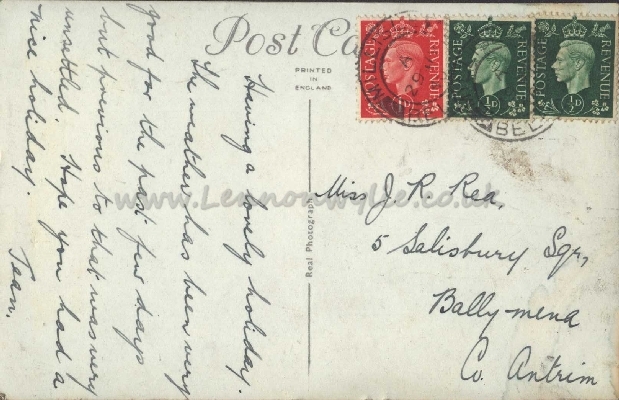 Post Ca
PRINTED
IN
ENGLAND
POSTAGE
REVENUE
POSTAGE
REVENUE
½D
POSTAGE
REVENUE
½D
BEL
Having a lovely holiday.
The weather has been very
good for the past few days
but previous to that was very
unsettled. Hope you had a
nice holiday.
Jean.
Real Photograph
www.Lennonwylie.co.uk
Miss J. R. Rea,
5 Salisbury Sqr,
Ballymena
Co. Antrim